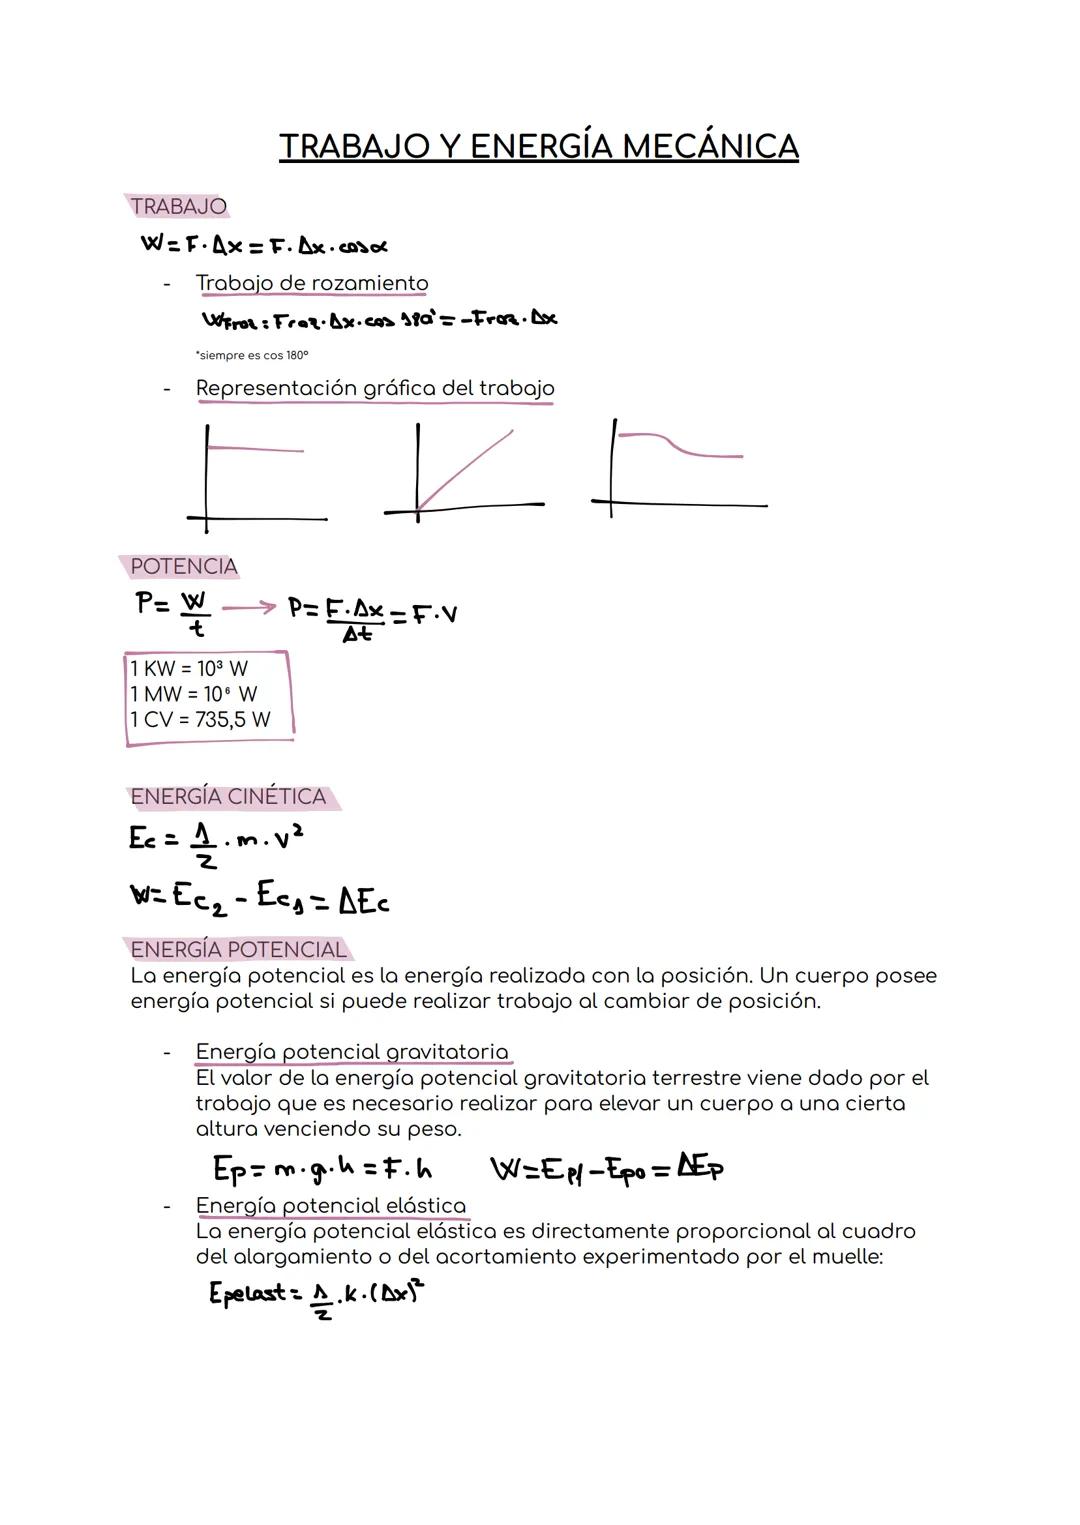 TRABAJO Y ENERGÍA MECÁNICA
TRABAJO
W = F · Δx = F · Δx · cosα
- Trabajo de rozamiento
WFroz = Froz · Δx · cos 180° = -Froz · Δx
*siempre es cos 180º
- Representación gráfica del trabajo
POTENCIA
P = W/t → P = F·Δx/Δt = F·V
1 KW = 10³ W
1 MW = 10⁶ W
1 CV = 735,5 W
ENERGÍA CINÉTICA
Ec = 1/2 · m · v²
W = Ec₂ - Ec₁ = ΔEc
ENERGÍA POTENCIAL
La energía potencial es la energía realizada con la posición. Un cuerpo posee
energía potencial si puede realizar trabajo al cambiar de posición.
- Energía potencial gravitatoria
El valor de la energía potencial gravitatoria terrestre viene dado por el
trabajo que es necesario realizar para elevar un cuerpo a una cierta
altura venciendo su peso.
Ep = m·g·h = F·h W = Epf - Epo = ΔEp
- Energía potencial elástica
La energía potencial elástica es directamente proporcional al cuadro
del alargamiento o del acortamiento experimentado por el muelle:
Epelast = 1/2 · k · (Δx)²